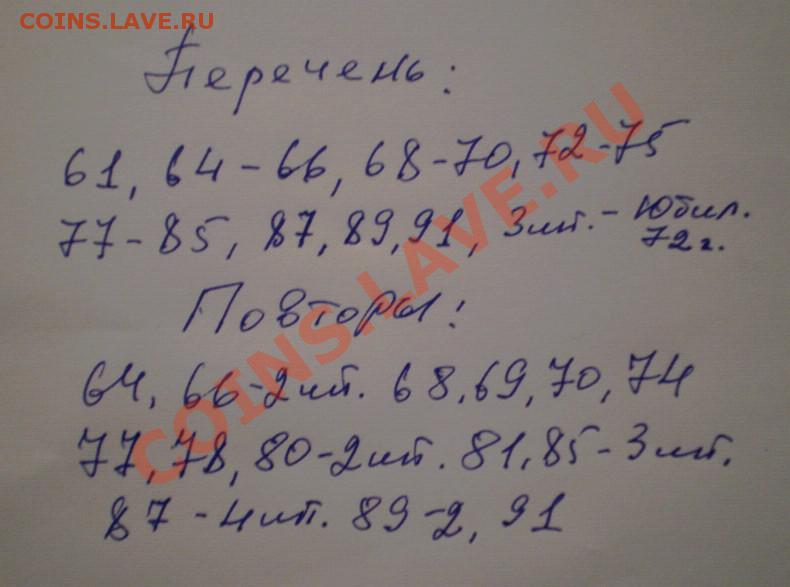 COINS.LAVE.RU
Перечень:
61, 64-66, 68-70, 72-75
77-85, 87, 89, 91, 3шт. - Юбил.
72г.
Повторы:
64, 66-2шт. 68, 69, 70, 74
77, 78, 80-2шт. 81, 85-3шт.
87-4шт. 89-2, 91
COINS.LAVE.RU